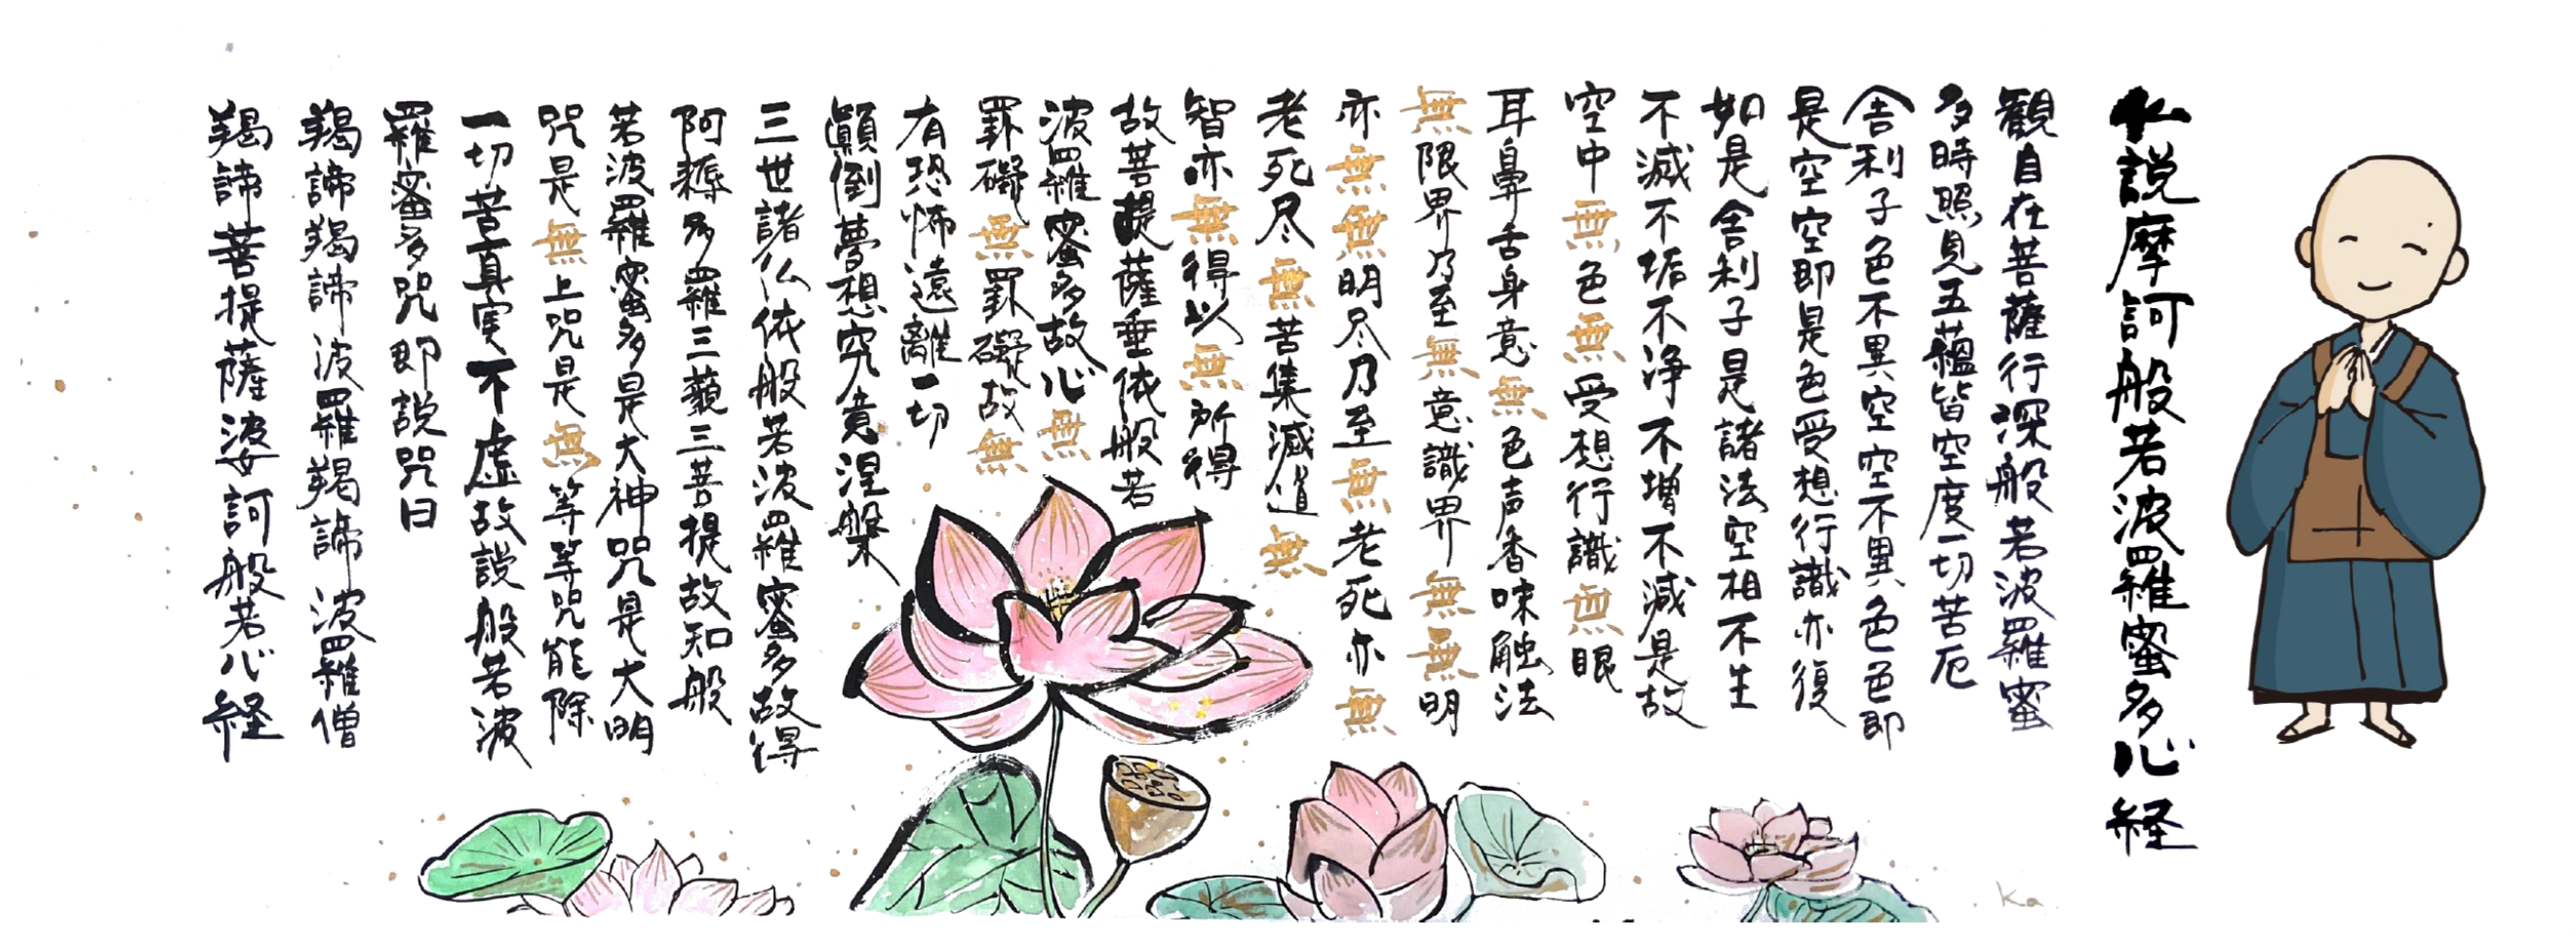 仏説摩訶般若波羅蜜多心経
観自在菩薩行深般若波羅蜜
多時照見五蘊皆空度一切苦厄
舎利子色不異空空不異色色即
是空空即是色受想行識亦復
如是舎利子是諸法空相不生
不滅不垢不浄不増不減是故
空中無色無受想行識無眼
耳鼻舌身意無色声香味触法
無限界乃至無意識界無無明
亦無無明尽乃至無老死亦無
老死尽無苦集滅道無
智亦無得以無所得
故菩提薩埵依般若
波羅蜜多故心無
罣礙無罣礙故無
有恐怖遠離一切
顛倒夢想究竟涅槃
三世諸仏依般若波羅蜜多故得
阿耨多羅三藐三菩提故知般
若波羅蜜多是大神咒是大明
咒是無上咒是無等等咒能除
一切苦真実不虚故説般若波
羅蜜多咒即説咒曰
羯諦羯諦波羅羯諦波羅僧
羯諦菩提薩婆訶般若心経
Ka